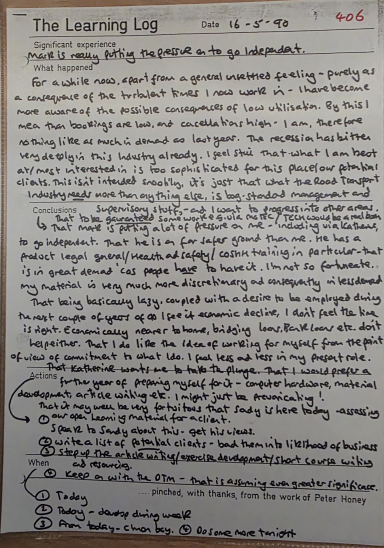 The Learning Log Date 16-5-90 406
Significant experience
Mark is really putting the pressure on to go Independent.
What happened
For a while now, apart from a general unsettled feeling - purely as
a consequence of the turbulent times I now work in - I have become
more aware of the possible consequences of low utilisation. By this I
mean than bookings are low, and cancellations high - I am, therefore
nothing like as much in demand as last year. The recession has bitten
very deeply in this Industry already. I feel still that what I am best
at/most interested in is too sophisticated for this place/our potential
clients. This isn't intended snobbily, it's just that what the Road Transport
Industry needs more than anything else, is bog-standard management and
Conclusions Supervisory stuff - and I want to progress into other areas.
That to be guaranteed some work e.g. via MSTC/TECH would be a real boon
That mark is putting a lot of pressure on me - including via Katherine,
to go independent. That he is on far safer ground than me. He has a
product legal general/Health and safety/coshh training in particular - that
is in great demand 'cos people have to have it. I'm not so fortunate.
my material is very much more discretionary and consequently in less demand
That being basically lazy, coupled with a desire to be employed during
the next couple of years as I see it economic decline, I don't feel the time
is right. Economically nearer to home, bridging loans. Bank loans etc. don't
help either. That I do like the idea of working for myself from the point
of view of commitment to what I do. I feel less and less in my present role.
That Katherine wants me to take the plunge. That I would prefer a
Actions further year of preparing myself for it - computer hardware, material
development, article writing etc. I might just be prevaricating!
That it may well be very fortuitous that Sandy is here today - assessing
our open Learning material for a client.
① Speak to Sandy about this - get his views.
② Write a list of potential clients - and them into likelihood of business
③ Step up the article writing/exercise development/short course writing
and resourcing.
When ④ Keep on with the OTM - that is assuming even greater significance.
① Today ....pinched, with thanks, from the work of Peter Honey
② Today - develop during week
③ From today - chun bey. ④ Do some more tonight